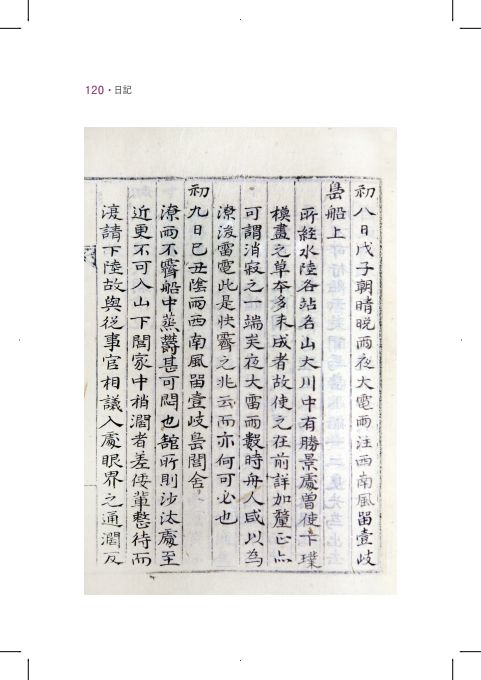 120・日記
初八日戊子朝晴晩雨夜大電雨注西南風留壹岐
島船上
所經水陸各站名山大川中有勝景處曾使卞璞
模畫之草本多未成者故使之在前詳加釐正亦
可謂消寂之一端矣夜大雷雨數時舟人咸以爲
潦後雷電此是快霽之兆云而亦何可必也
初九日己丑陰雨西南風留壹岐島閣舍
潦雨不霽船中蒸欝甚可悶也舘所則沙汰處至
近更不可入山下閭家中稍濶者差倭輩懃待而
演請下陸故與從事官相議入處眼界之通濶反